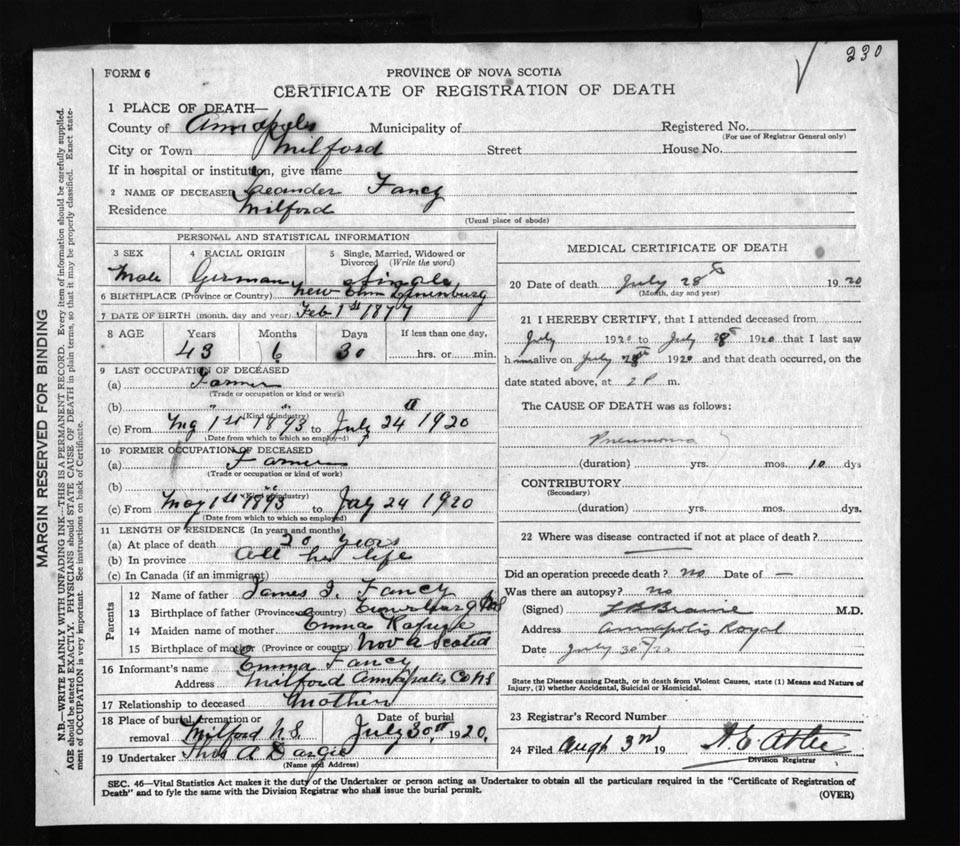 230
FORM 6
PROVINCE OF NOVA SCOTIA
CERTIFICATE OF REGISTRATION OF DEATH
1 PLACE OF DEATH—
County of Annapolis Municipality of Registered No.
(For use of Registrar General only)
City or Town Milford Street House No.
If in hospital or institution, give name
2 NAME OF DECEASED Leander Fancy
Residence Milford
(Usual place of abode)
PERSONAL AND STATISTICAL INFORMATION
3 SEX 4 RACIAL ORIGIN 5 Single, Married, Widowed or
Divorced (Write the word)
Male German Single
6 BIRTHPLACE (Province or Country) New Lunenburg
7 DATE OF BIRTH (month, day and year) Feb 1st 1877
8 AGE Years Months Days If less than one day,
43 6 30 hrs. or min.
9 LAST OCCUPATION OF DECEASED
(a) Farmer
(Trade or occupation or kind or work)
(b)
(Kind of industry)
(c) From 1st 1893 to July 24 1920
(Date from which to which so employed)
10 FORMER OCCUPATION OF DECEASED
(a) Farmer
(Trade or occupation or kind of work)
(b)
(Kind of industry)
(c) From May 1st 1893 to July 24 1920
(Date from which to which so employed)
11 LENGTH OF RESIDENCE (In years and months)
(a) At place of death 20 years
(b) In province all his life
(c) In Canada (if an immigrant)
Parents
12 Name of father James Fancy
13 Birthplace of father (Province or country) N S
14 Maiden name of mother Emma Rafuse
15 Birthplace of mother (Province or country) Nova Scotia
16 Informant's name Emma Fancy
Address Milford Annapolis Co NS
17 Relationship to deceased Mother
18 Place of burial, cremation or Date of burial
removal Milford N.S. July 30th, 1920.
19 Undertaker Thos A Dargie
(Name and Address)
MEDICAL CERTIFICATE OF DEATH
20 Date of death July 28th 1920
(Month, day and year)
21 I HEREBY CERTIFY, that I attended deceased from
July 1920 to July 28th 1920 that I last saw
him alive on July 28th 1920 and that death occurred, on the
date stated above, at 2 P m.
The CAUSE OF DEATH was as follows:
Pneumonia
(duration) yrs. mos. 10 dys
CONTRIBUTORY
(Secondary)
(duration) yrs. mos. dys.
22 Where was disease contracted if not at place of death?
Did an operation precede death? No Date of —
Was there an autopsy? No
(Signed) L B Braine M.D.
Address Annapolis Royal
Date July 30/20
State the Disease causing Death, or in death from Violent Causes, state (1) Means and Nature of
Injury, (2) whether Accidental, Suicidal or Homicidal.
23 Registrar's Record Number
24 Filed Augh 3rd 19
Division Registrar
SEC. 46—Vital Statistics Act makes it the duty of the Undertaker or person acting as Undertaker to obtain all the particulars required in the "Certificate of Registration of
Death" and to fyle the same with the Division Registrar who shall issue the burial permit.
(OVER)
MARGIN RESERVED FOR BINDING
N.B.—WRITE PLAINLY WITH UNFADING INK—THIS IS A PERMANENT RECORD. Every item of information should be carefully supplied.
AGE should be stated EXACTLY. PHYSICIANS should STATE CAUSE OF DEATH in plain terms, so that it may be properly classified. Exact state-
ment of OCCUPATION is very important. See instructions on back of Certificate.